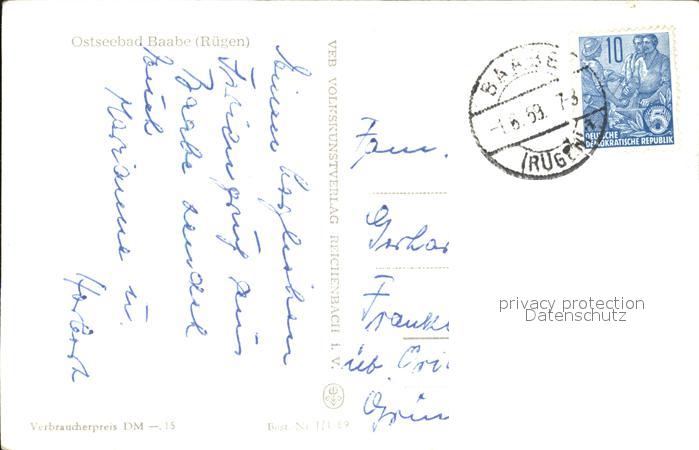 Ostseebad Baabe (Rügen)
Einen herzlichen
Feriengruß aus
Baabe sendet
Euch
Marianne u.
Herbert
Verbraucherpreis DM —.15
Best. Nr. 1/1 69
VEB VOLKSKUNSTVERLAG REICHENBACH i. V.
Fam.
Gerhar
Franke
üb. Cri
Grün
BAABE
-1.6.59. 7-8
(RÜGEN)
10
5
DEUTSCHE
DEMOKRATISCHE REPUBLIK
privacy protection
Datenschutz